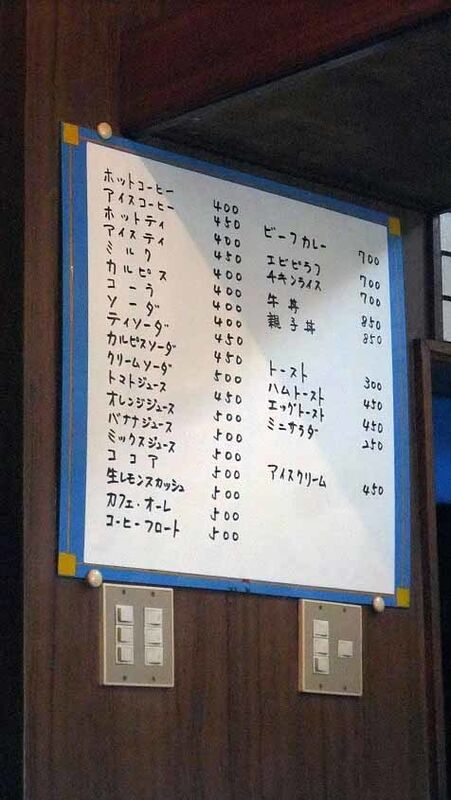 ホットコーヒー 400
アイスコーヒー 450
ホットティ 400
アイスティ 450
ミルク 400
カルピス 400
コーラ 400
ソーダ 400
ティソーダ 450
カルピスソーダ 450
クリームソーダ 500
トマトジュース 450
オレンジジュース 500
バナナジュース 500
ミックスジュース 500
ココア 500
生レモンスカッシュ 500
カフェ・オーレ 500
コーヒーフロート 500
ビーフカレー 700
エビピラフ 700
チキンライス 700
牛丼 850
親子丼 850
トースト 300
ハムトースト 450
エッグトースト 450
ミニサラダ 250
アイスクリーム 450